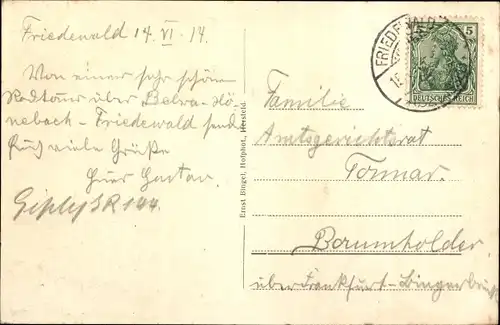 Friedewald 14. VI. 14.
Von einer sehr schönen
Radtour über Bebra-Hö-
nebach-Friedewald sende
Euch viele Grüße
Euer Gustav.
Ernst Bingel, Hofphot., Hersfeld.
FRIEDEWALD
5
DEUTSCHES REICH
Familie
Amtsgerichtsrat
Baumholder
über Frankfurt-Bingerbrück